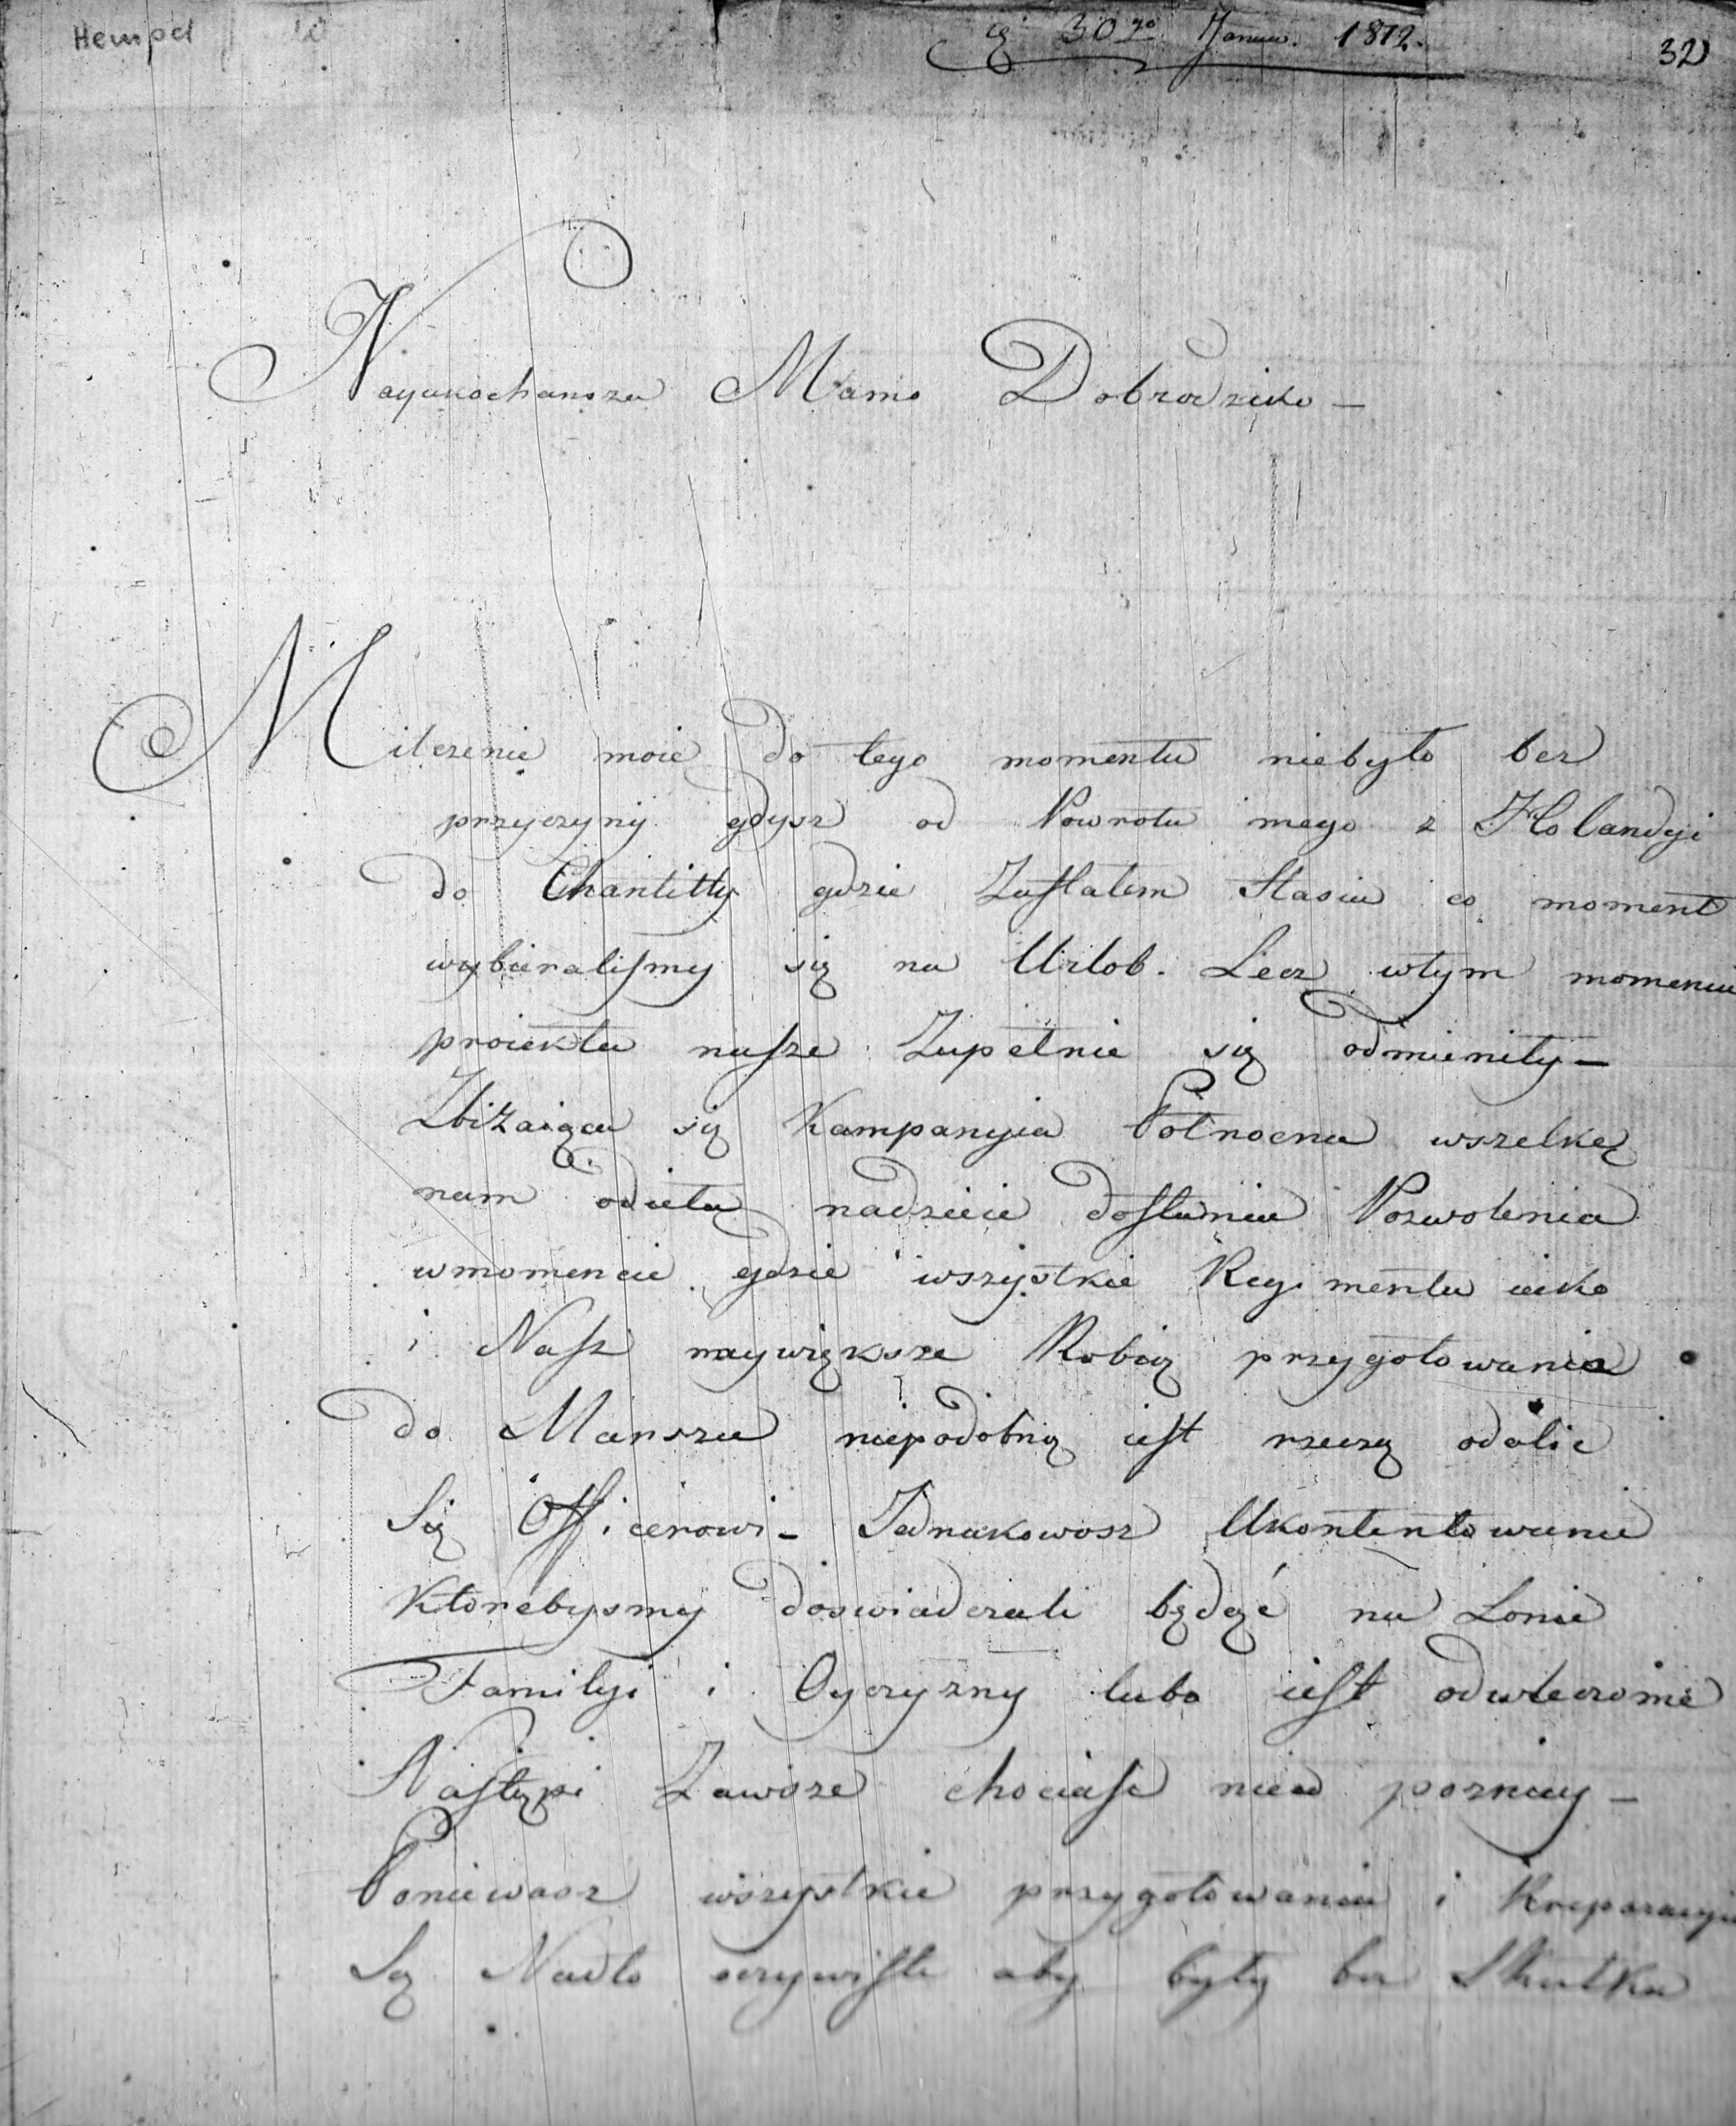 Hempel 10
30go Janua. 1812.
32
Nayukochansza Mamo Dobrodziko –
Milczenie moie do tego momentu niebyło bez
przyczyny gdysz od Powrotu mego z Holandyi
do Chantilly gdzie Zastałem Stasia co moment
wybieralismy się na Urlob. Lecz wtym momencie
proiekta nasze Zupełnie się odmieniły –
Zbiżaiąca się Kampanyia Połnocna wszelką
nam odieła nadzieie dostania Pozwolenia
wmomencie gdzie wszystkie Regimenta iako
i Nasz naywiększe Robią przygotowania
do Marszu niepodobną iest rzeczą odalic
Się Officerowi – Jednakowosz Ukontentowanie
Ktorebysmy doswiadczali będąć na Łonie
Familyi i Oyczyzny lubo iest odwleczone
Nastąpi Zawsze chociasz nieco pozniey –
Poniewasz wszystkie przygotowania i Kreparacyie
Są Nadto oczywiste aby były bez Skutku